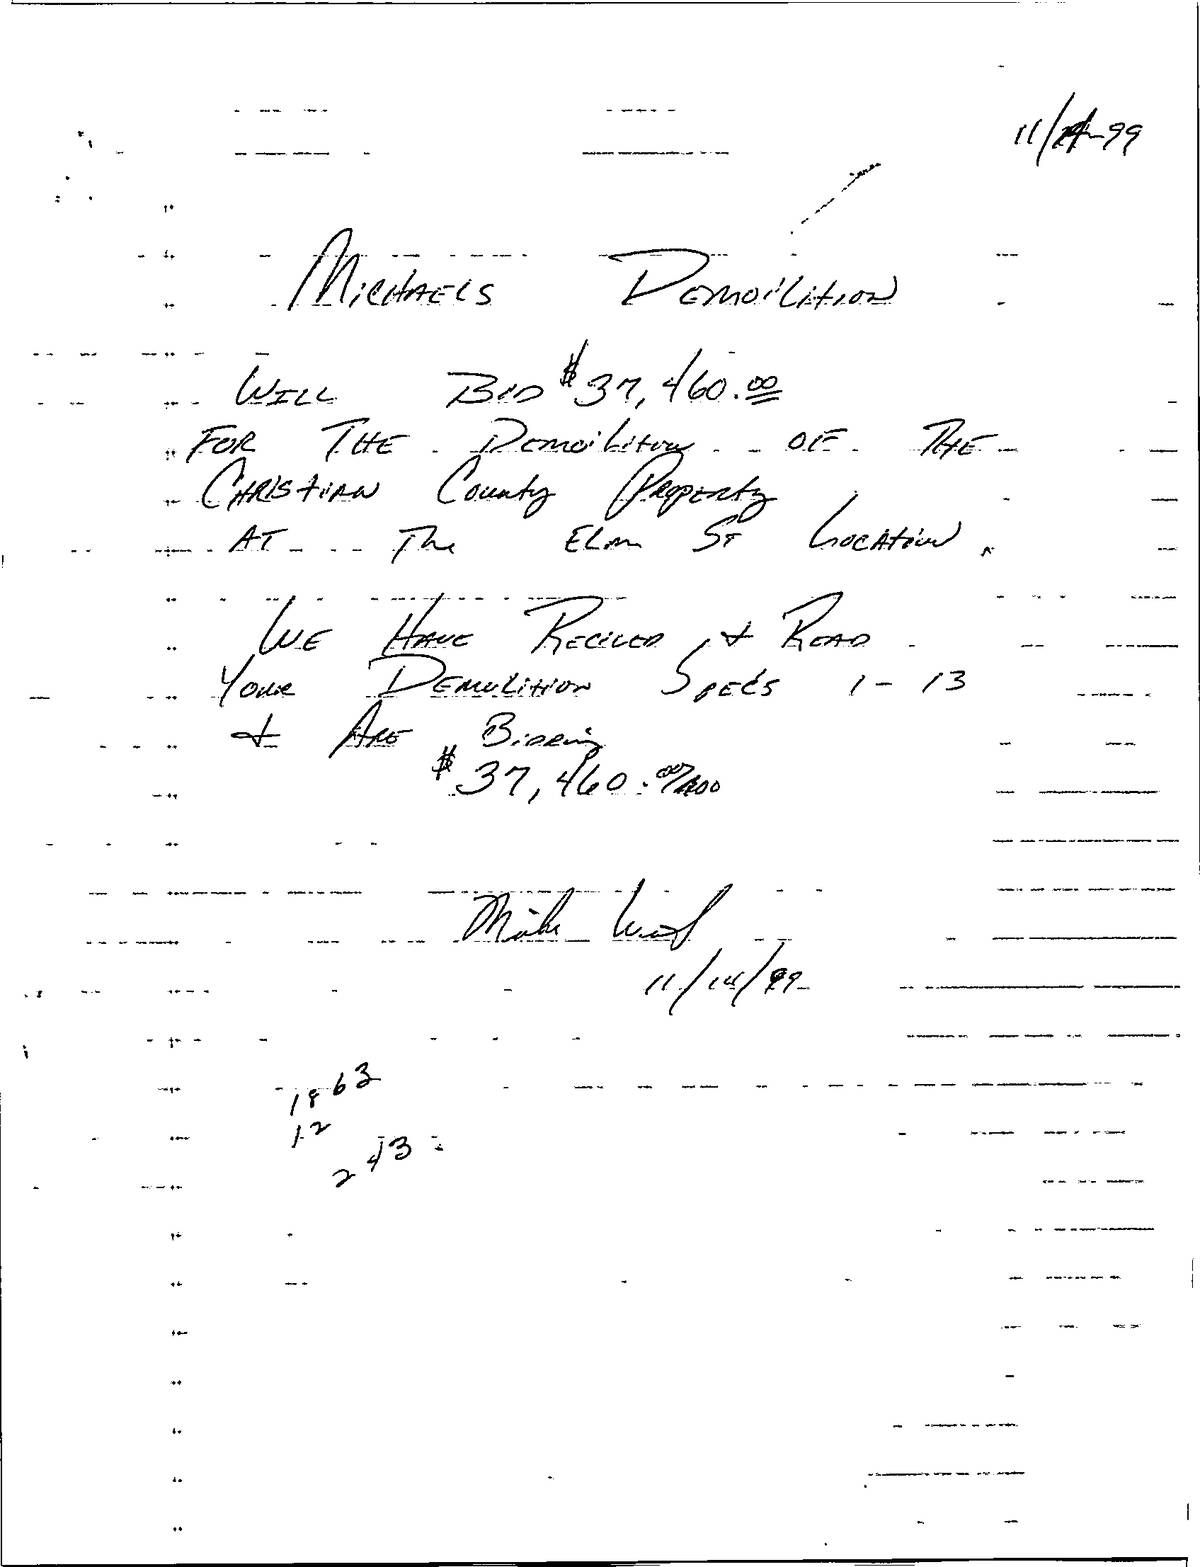 11/14-99
MICHAELS DEMOILITION
WILL BID $37,460.00
FOR THE DEMOILITION OF THE
CHRISTIAN COUNTY PROPERTY
AT The ELM ST LOCATION.
WE HAVE RECIVED & READ
YOUR DEMOLITION SPECS 1-13
& ARE BIDDING
$37,460.00/100
Mike
11/14/99
1863
12
243